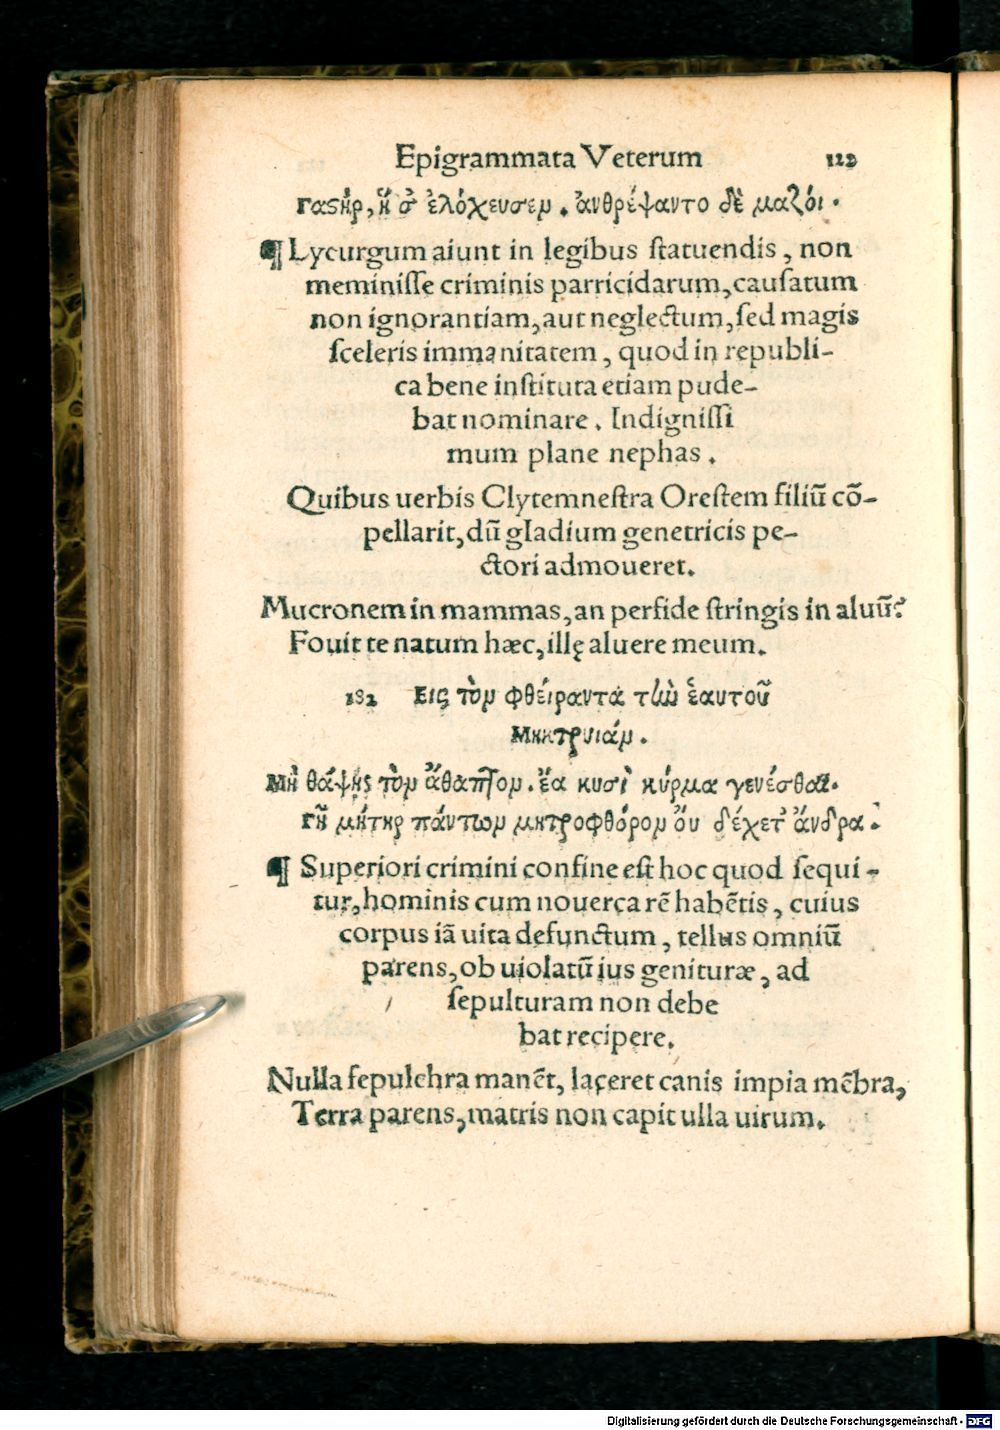 Epigrammata Veterum 122
Γαςὴρ, ἥ σ᾽ ἐλόχευσεν . ἀνθρέψαντο δὲ μαζόι .
¶ Lycurgum aiunt in legibus ſtatuendis , non
meminiſſe criminis parricidarum, cauſatum
non ignorantiam, aut neglectum, ſed magis
ſceleris immanitatem , quod in republi-
ca bene inſtituta etiam pude-
bat nominare . Indigniſſi
mum plane nephas .
Quibus uerbis Clytemneſtra Oreſtem filiũ cõ-
pellarit, dũ gladium genetricis pe-
ctori admoueret.
Mucronem in mammas, an perfide ſtringis in aluũ?
Fouit te natum hæc, illę aluere meum.
182 Εις τὸν φθείραντά τὼ ἑαυτοῦ
Μητρυιάν .
Μὴ θάψῃς τὸν ἄθαπτον . ἔα κυσὶ κύρμα γενέσθαι .
Γῆ μήτηρ πάντων μητροφθόρον ὄυ δέχετ᾽ ἄνδρα .
¶ Superiori crimini confine eſt hoc quod ſequi-
tur, hominis cum nouerca rẽ habẽtis , cuius
corpus iã uita defunctum , tellus omniũ
parens, ob uiolatũ ius genituræ , ad
ſepulturam non debe
bat recipere.
Nulla ſepulchra manẽt, laceret canis impia mẽbra,
Terra parens, matris non capit ulla uirum.
Digitalisierung gefördert durch die Deutsche Forschungsgemeinschaft - DFG